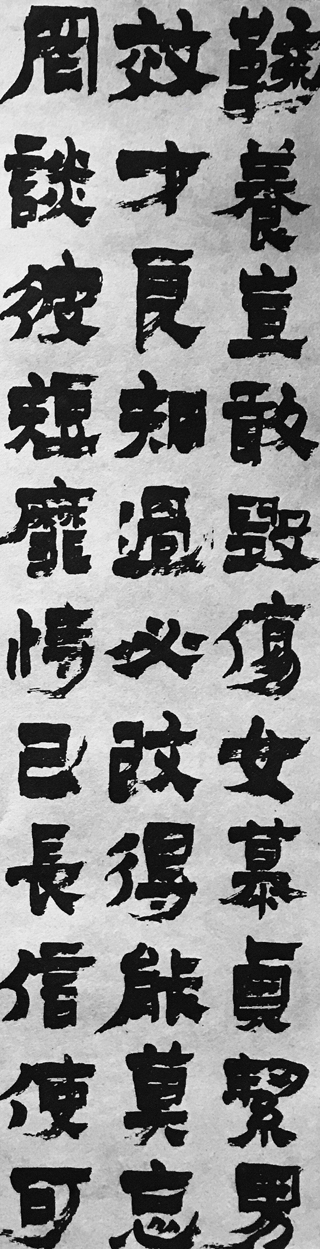 鞠養豈敢毀傷女慕貞絜男
效才良知過必改得能莫忘
罔談彼短靡恃己長信使可